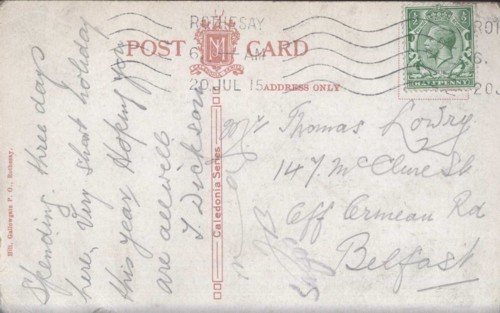 ROTHESAY
6 AM
20 JUL 15
POST CARD
ADDRESS ONLY
HALFPENNY
Spending three days
here, Very short holiday
this year Hoping you
are all well
T Dickson
Caledonia Series
Hill, Gallowgate P. O., Rothesay.
Thomas Lowry
147 McClure St
Off Ormeau Rd
Belfast